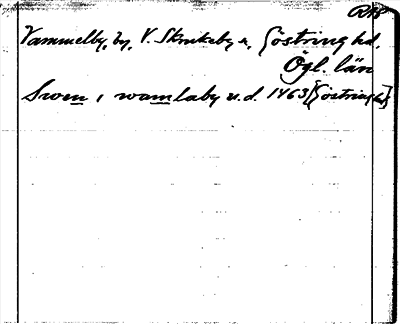 Vammelby, by, V. Skrukeby sn, Göstring hd,
Ögl. län
Swen i wamlaby u.d. 1463 [Göstring hd]